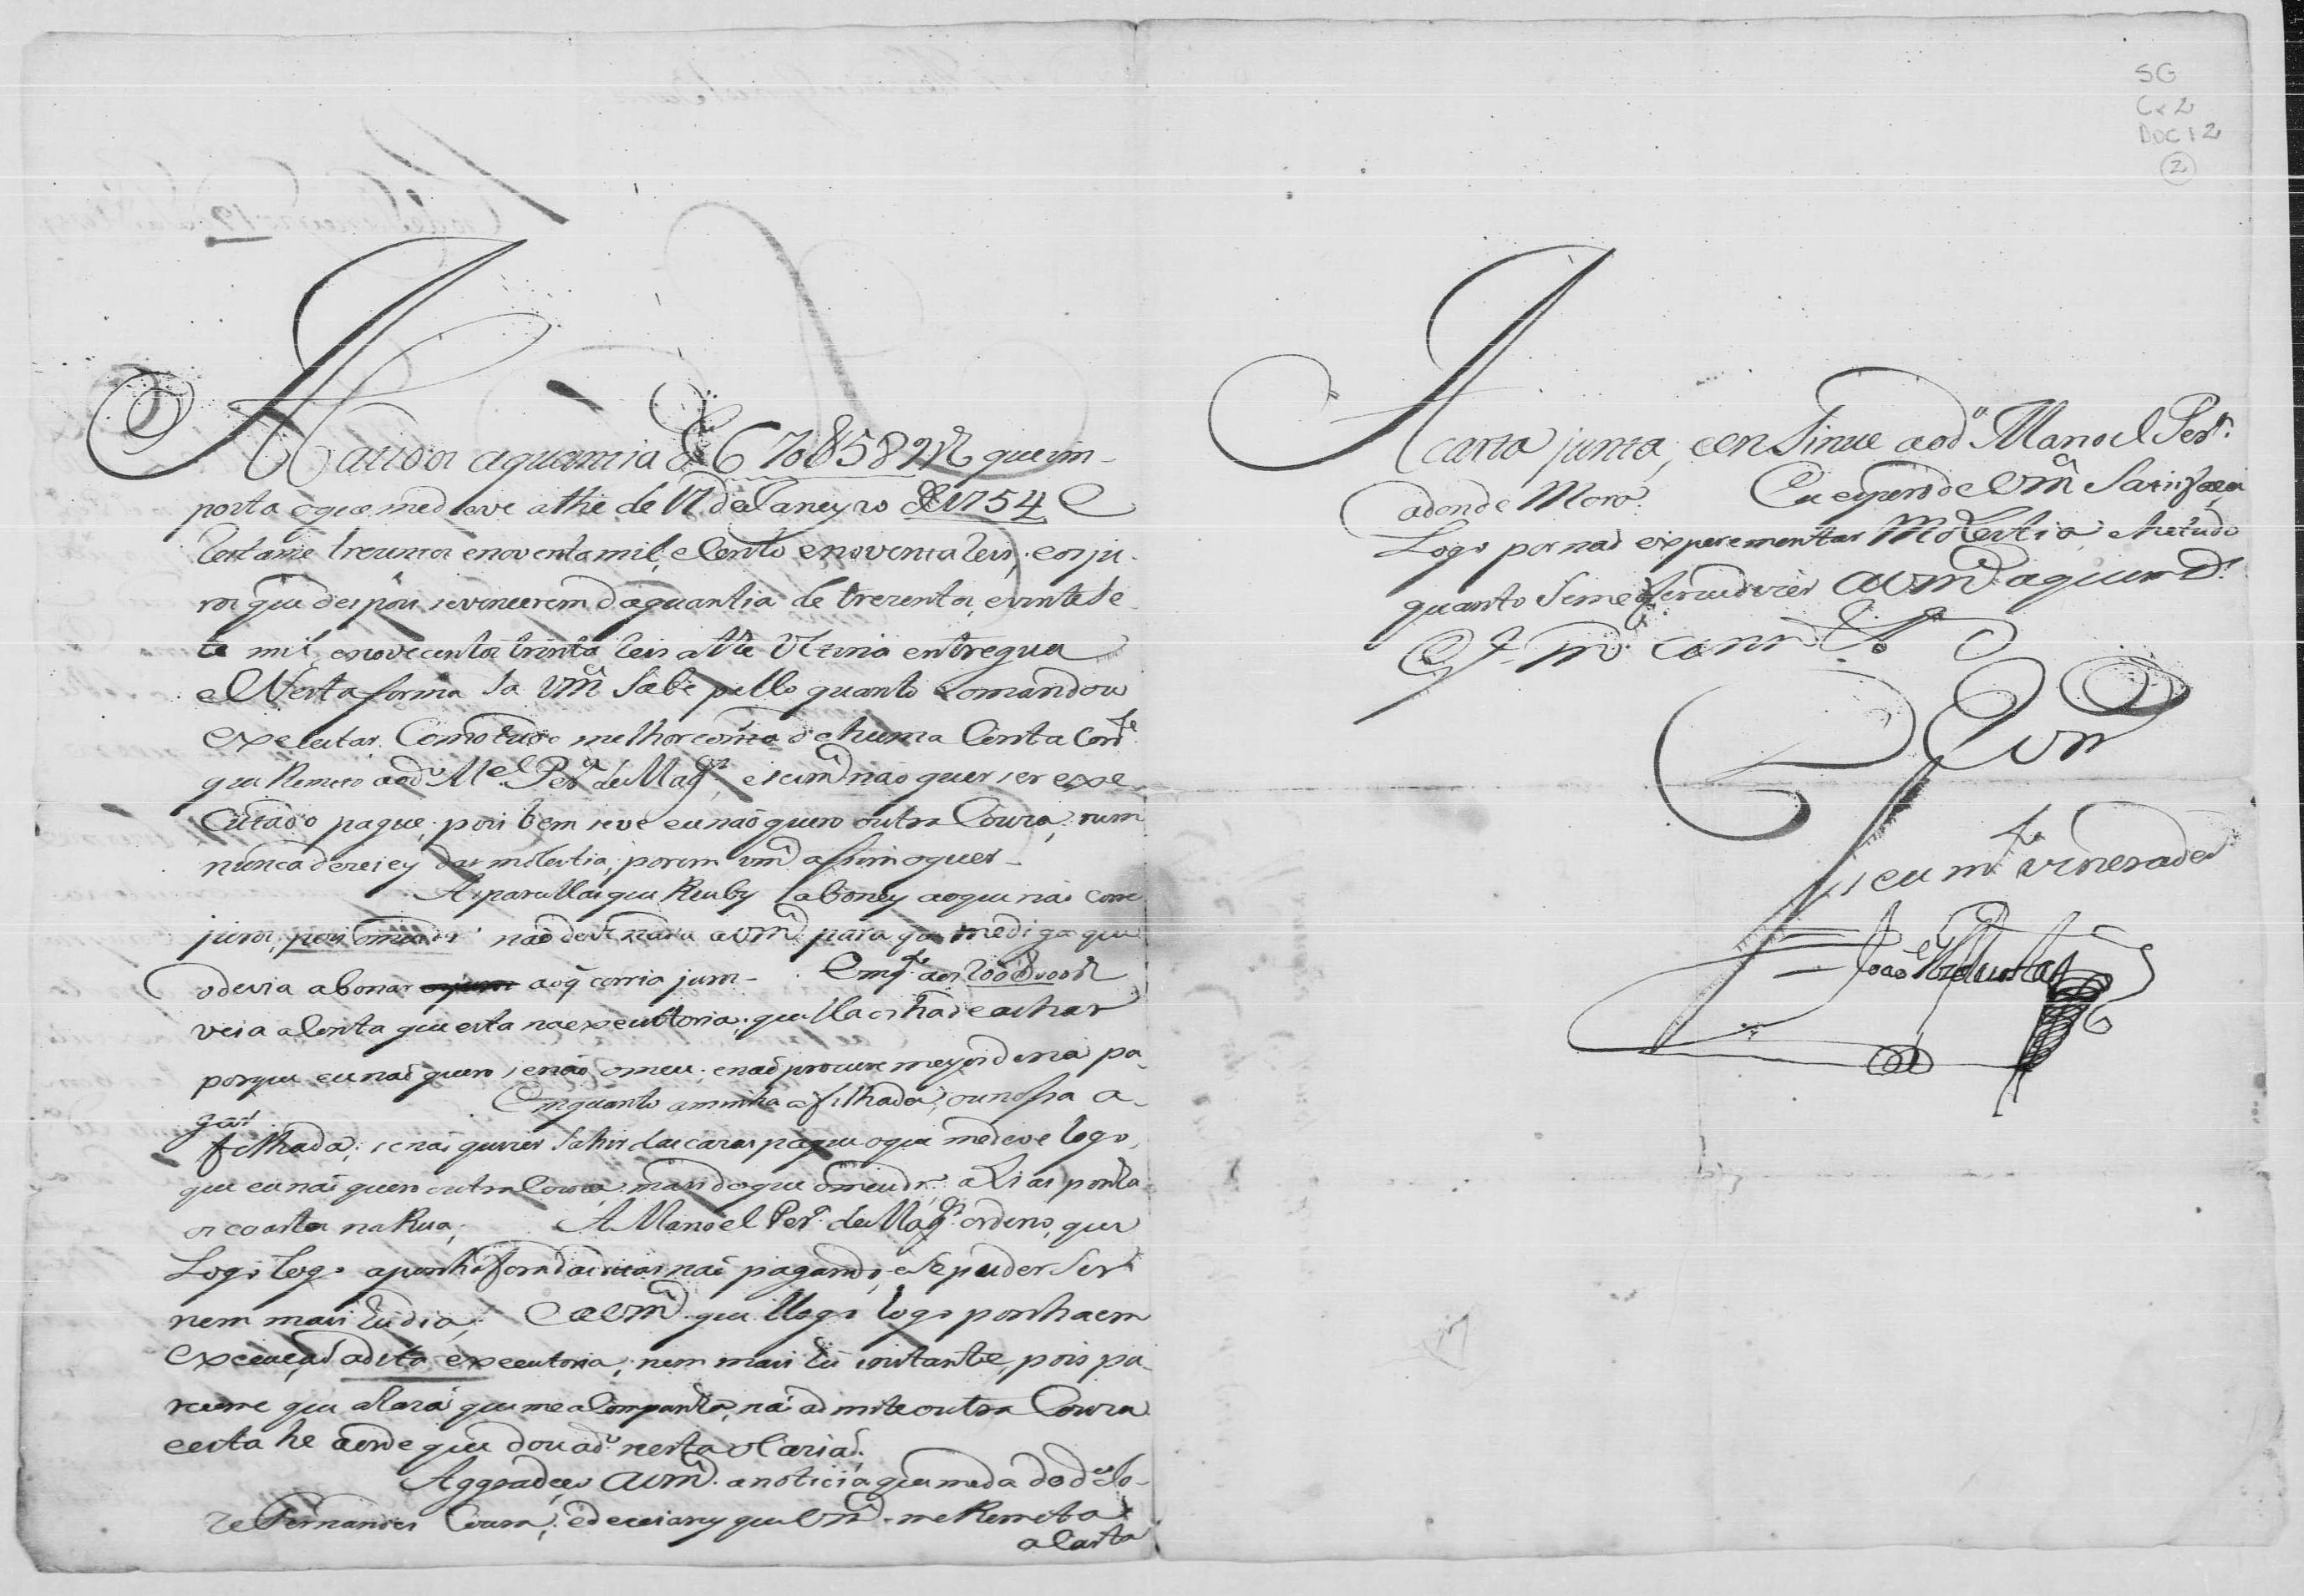 SG
Cx 2
DOC 12
2
a quantia de 670$589 rs que im-
porta o que me deve athe de 17 de Janeyro de 1754 e
trezentos e noventa mil, e cento e noventa reis, e os ju-
ros que despois se vencerem da quantia de trezentos, e vinte se-
te mil, e novecentos trinta reis athe Ultima entregua
e Nesta forma ja Vm.ce sabe pello quanto o mandou
executar. Como tudo melhor consta de huma Conta Corr.te
que Remeto ao d.o M.el Per.a de Mag.es, e se vm.ce não quer ser exe-
cutado pague, pois bem se ve eu não quero outra Couza, num
nunca dezejey dar molestia, porem vm.ce assim o quer-
As parcellas que Reseby aboney ao que não corre
juros, pois não devo nada a vm.ce para que me diga que
o devia abonar ao q corria juros- Em q.to aos 200$000 rs
veja a Conta que esta na executoria, que lla os ha de achar
porque eu não quero senão o meu, e não procure meyos de não pa-
gar
Emquanto a minha afilhada, ou nossa a-
filhada, se não quizer sahir das cazas pague o que me deve logo,
que eu não quero outra Couza mais do que o meu dr.o, alias ponha
os coartos na Rua, A Manoel Per.a de Mag.es ordeno, que
Logo logo a ponha fora das cazas não pagando, e se puder ser
nem mais hu dia, e a vm.ce que llogo logo ponha em
execução a dita executoria, nem mais hu instante, pois pa-
resseme que a Cara que me acompanha, não admite outra Couza
e esta he a orde que dou ao d.o nesta ocazião.
Aggradeço a vm.ce a noticia que me da do d.o Jo-
ze Fernandes Coura, e dezejarey que Vm.ce me Remeta
a Carta
A carta junta, e en Sinue ao d.o Manoel Per.a
adonde Mora. Eu espero de Vm.ce Satisfaça
Logo por não experementar Molestia, e he tudo
quanto se me offerece dizer a vm.ce a quem D.s
g.e m.s ann.s
De Vm
Seu m.to venerador
João